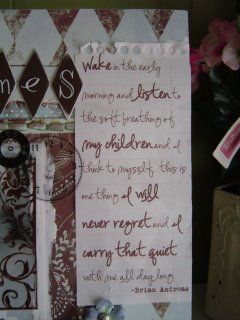 mes
wake in the early
morning and listen to
the soft breathing of
my children and I
think to myself, this is
one thing I will
never regret and I
carry that quiet
with me all day long.
-Brian Andreas